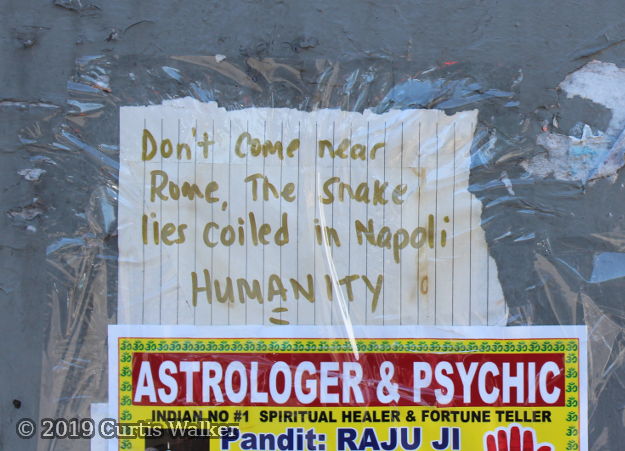 Don't Come near
Rome, The snake
lies coiled in Napoli
HUMANITY
ASTROLOGER & PSYCHIC
INDIAN NO #1 SPIRITUAL HEALER & FORTUNE TELLER
Pandit: RAJU JI
© 2019 Curtis Walker